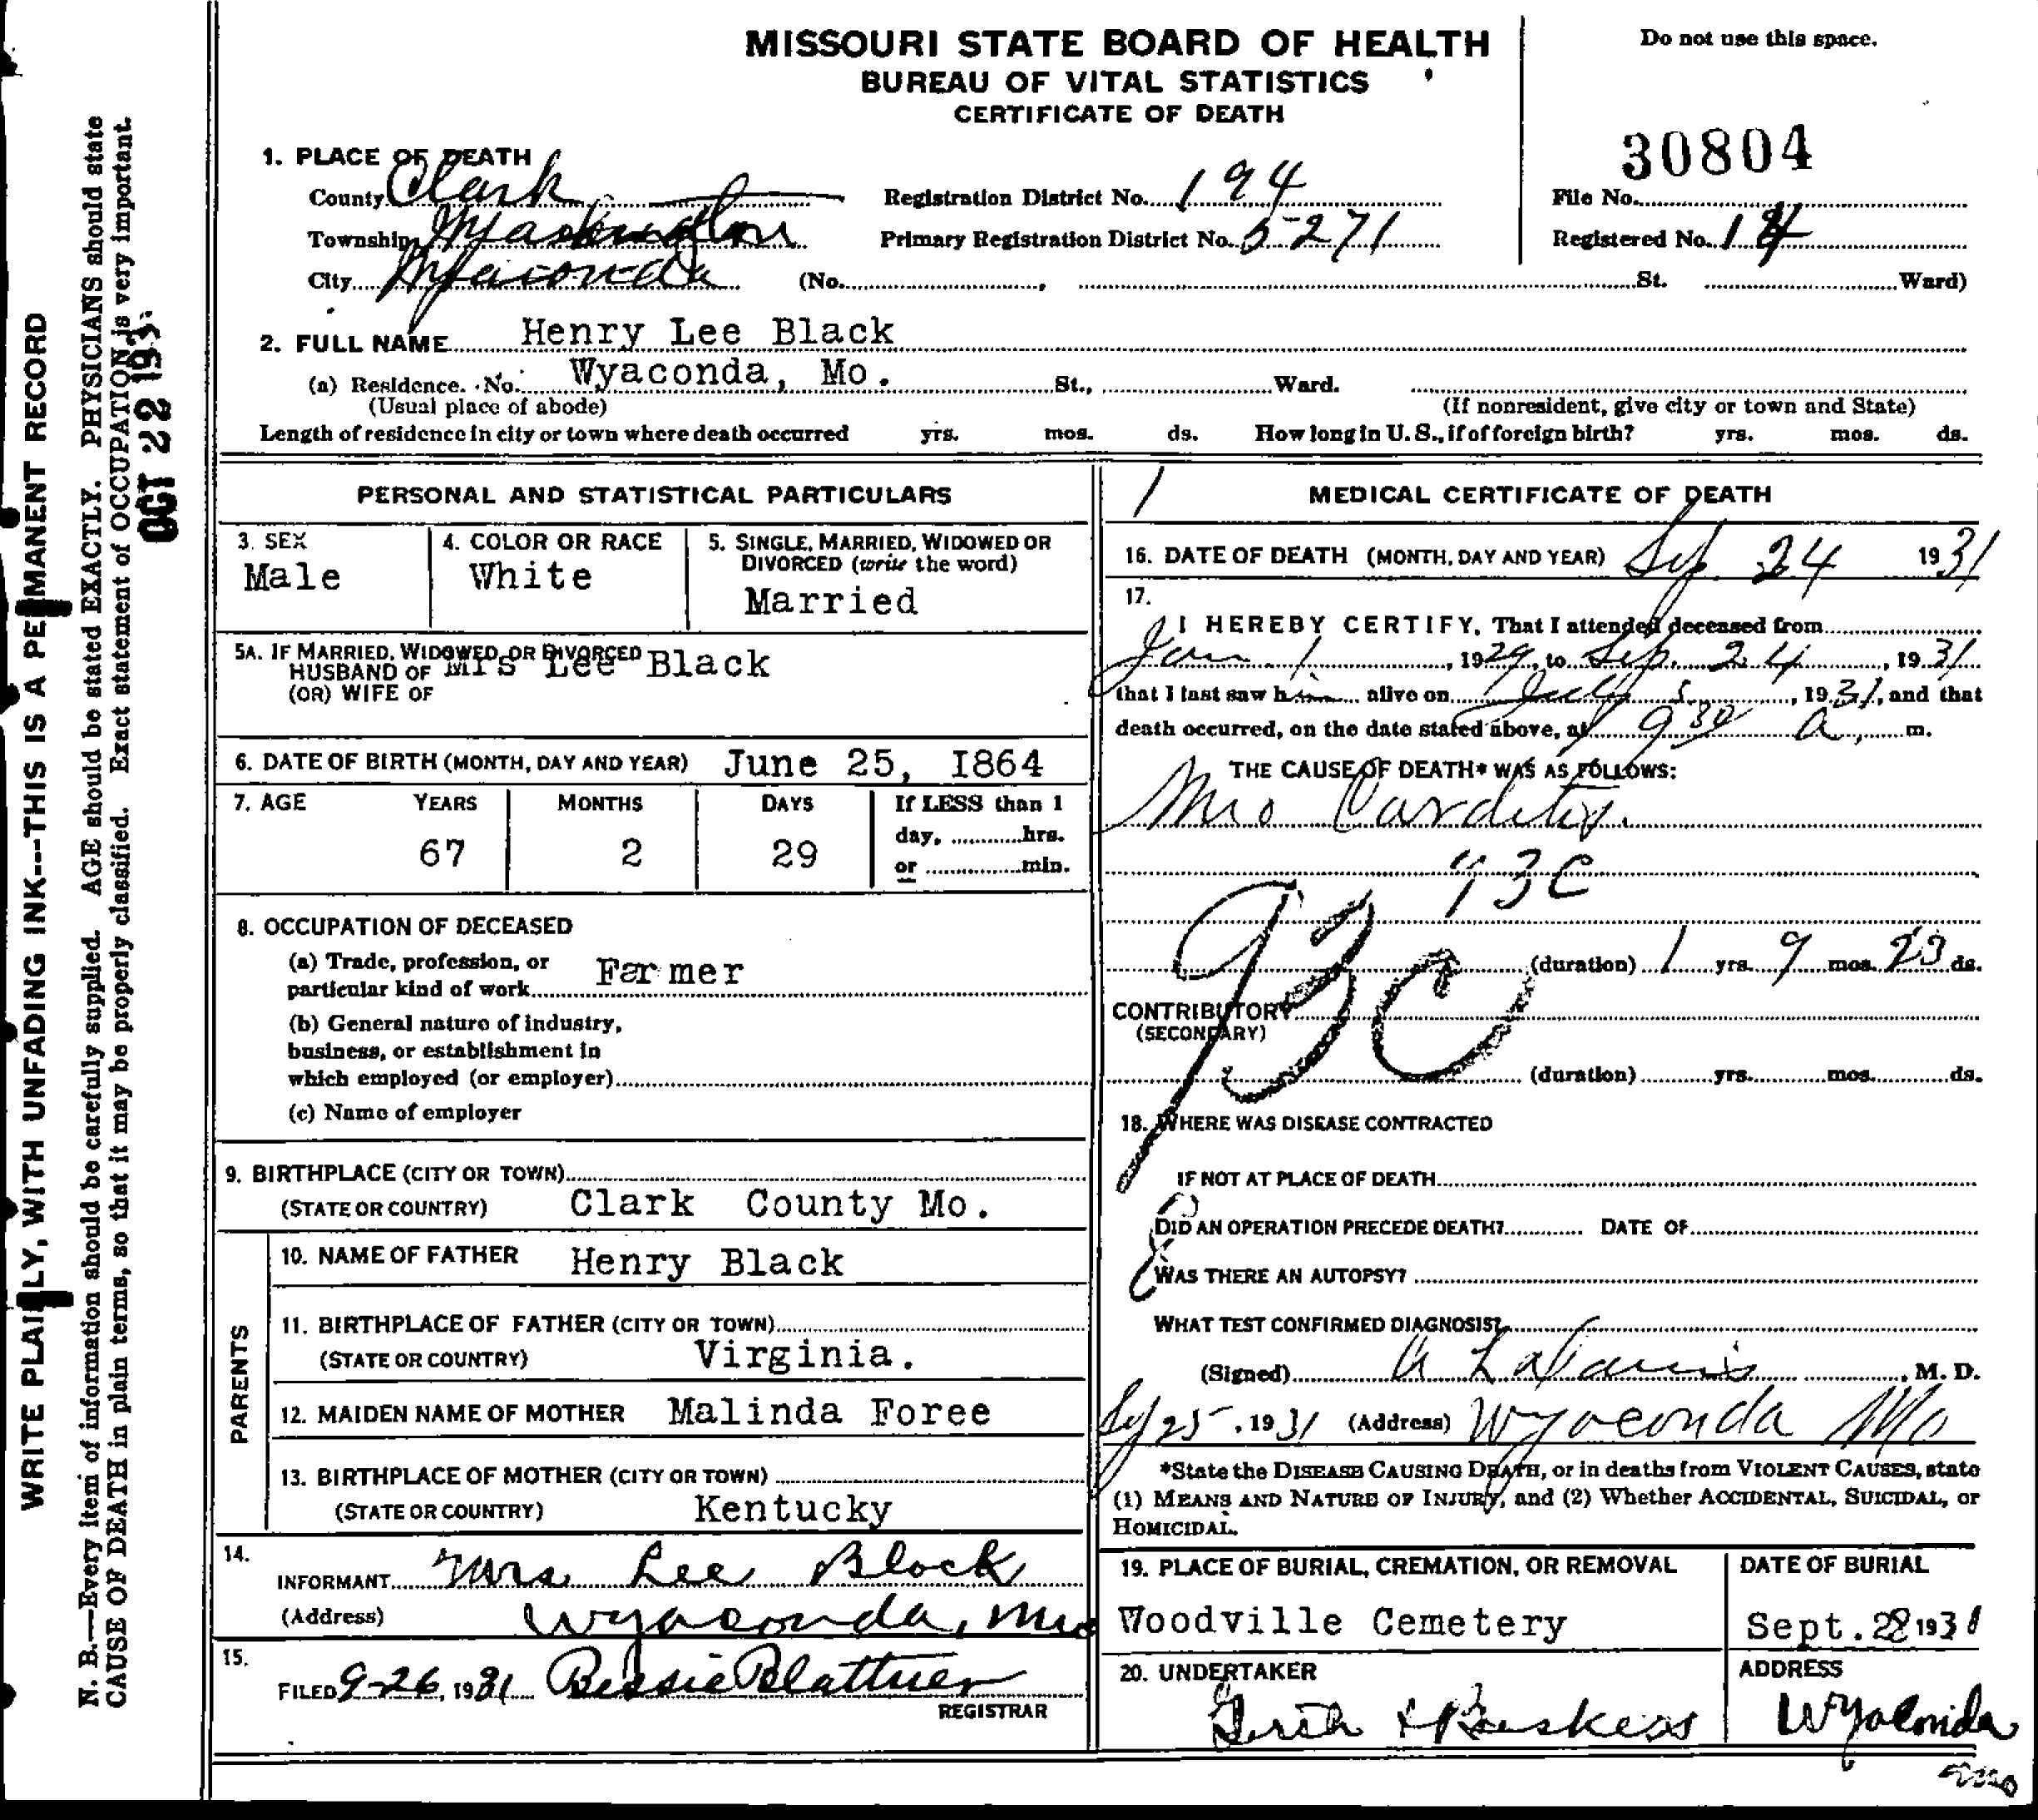 MISSOURI STATE BOARD OF HEALTH
BUREAU OF VITAL STATISTICS
CERTIFICATE OF DEATH
Do not use this space.
30804
1. PLACE OF DEATH
County Clark
Registration District No. 194
File No.
Township Washington
Primary Registration District No. 5271
Registered No. 14
City Wyaconda (No. , St. Ward)
2. FULL NAME Henry Lee Black
(a) Residence. No. Wyaconda, Mo. St., Ward.
(Usual place of abode) (If nonresident, give city or town and State)
Length of residence in city or town where death occurred yrs. mos. ds. How long in U. S., if of foreign birth? yrs. mos. ds.
PERSONAL AND STATISTICAL PARTICULARS
3. SEX
Male
4. COLOR OR RACE
White
5. SINGLE, MARRIED, WIDOWED OR
DIVORCED (write the word)
Married
5A. IF MARRIED, WIDOWED, OR DIVORCED
HUSBAND OF Mrs Lee Black
(OR) WIFE OF
6. DATE OF BIRTH (MONTH, DAY AND YEAR) June 25, I864
7. AGE YEARS MONTHS DAYS If LESS than 1
day, hrs.
or min.
67 2 29
8. OCCUPATION OF DECEASED
(a) Trade, profession, or
particular kind of work Farmer
(b) General nature of industry,
business, or establishment in
which employed (or employer)
(c) Name of employer
9. BIRTHPLACE (CITY OR TOWN)
(STATE OR COUNTRY) Clark County Mo.
PARENTS
10. NAME OF FATHER Henry Black
11. BIRTHPLACE OF FATHER (CITY OR TOWN)
(STATE OR COUNTRY) Virginia.
12. MAIDEN NAME OF MOTHER Malinda Foree
13. BIRTHPLACE OF MOTHER (CITY OR TOWN)
(STATE OR COUNTRY) Kentucky
14.
INFORMANT Mrs Lee Black
(Address) Wyaconda, Mo
15.
FILED 9-26, 1931 Bessie Blattner
REGISTRAR
1
MEDICAL CERTIFICATE OF DEATH
16. DATE OF DEATH (MONTH, DAY AND YEAR) Sep. 24 1931
17.
I HEREBY CERTIFY, That I attended deceased from
Jan 1, 1929, to Sep. 24, 1931
that I last saw him alive on July 5, 1931, and that
death occurred, on the date stated above, at 9 30 a, m.
THE CAUSE OF DEATH* WAS AS FOLLOWS:
Mio Carditis.
93C
93C
(duration) 1 yrs. 9 mos. 23 ds.
CONTRIBUTORY
(SECONDARY)
(duration) yrs. mos. ds.
18. WHERE WAS DISEASE CONTRACTED
IF NOT AT PLACE OF DEATH
DID AN OPERATION PRECEDE DEATH? DATE OF
WAS THERE AN AUTOPSY?
WHAT TEST CONFIRMED DIAGNOSIS?
(Signed) , M. D.
Sep 25, 1931 (Address) Wyaconda Mo
*State the DISEASE CAUSING DEATH, or in deaths from VIOLENT CAUSES, state
(1) MEANS AND NATURE OF INJURY, and (2) Whether ACCIDENTAL, SUICIDAL, or
HOMICIDAL.
19. PLACE OF BURIAL, CREMATION, OR REMOVAL
Woodville Cemetery
DATE OF BURIAL
Sept. 28 1931
20. UNDERTAKER
ADDRESS
Wyaconda
Mo
WRITE PLAINLY, WITH UNFADING INK---THIS IS A PERMANENT RECORD
N. B.—Every item of information should be carefully supplied. AGE should be stated EXACTLY. PHYSICIANS should state
CAUSE OF DEATH in plain terms, so that it may be properly classified. Exact statement of OCCUPATION is very important.
OCT 22 193